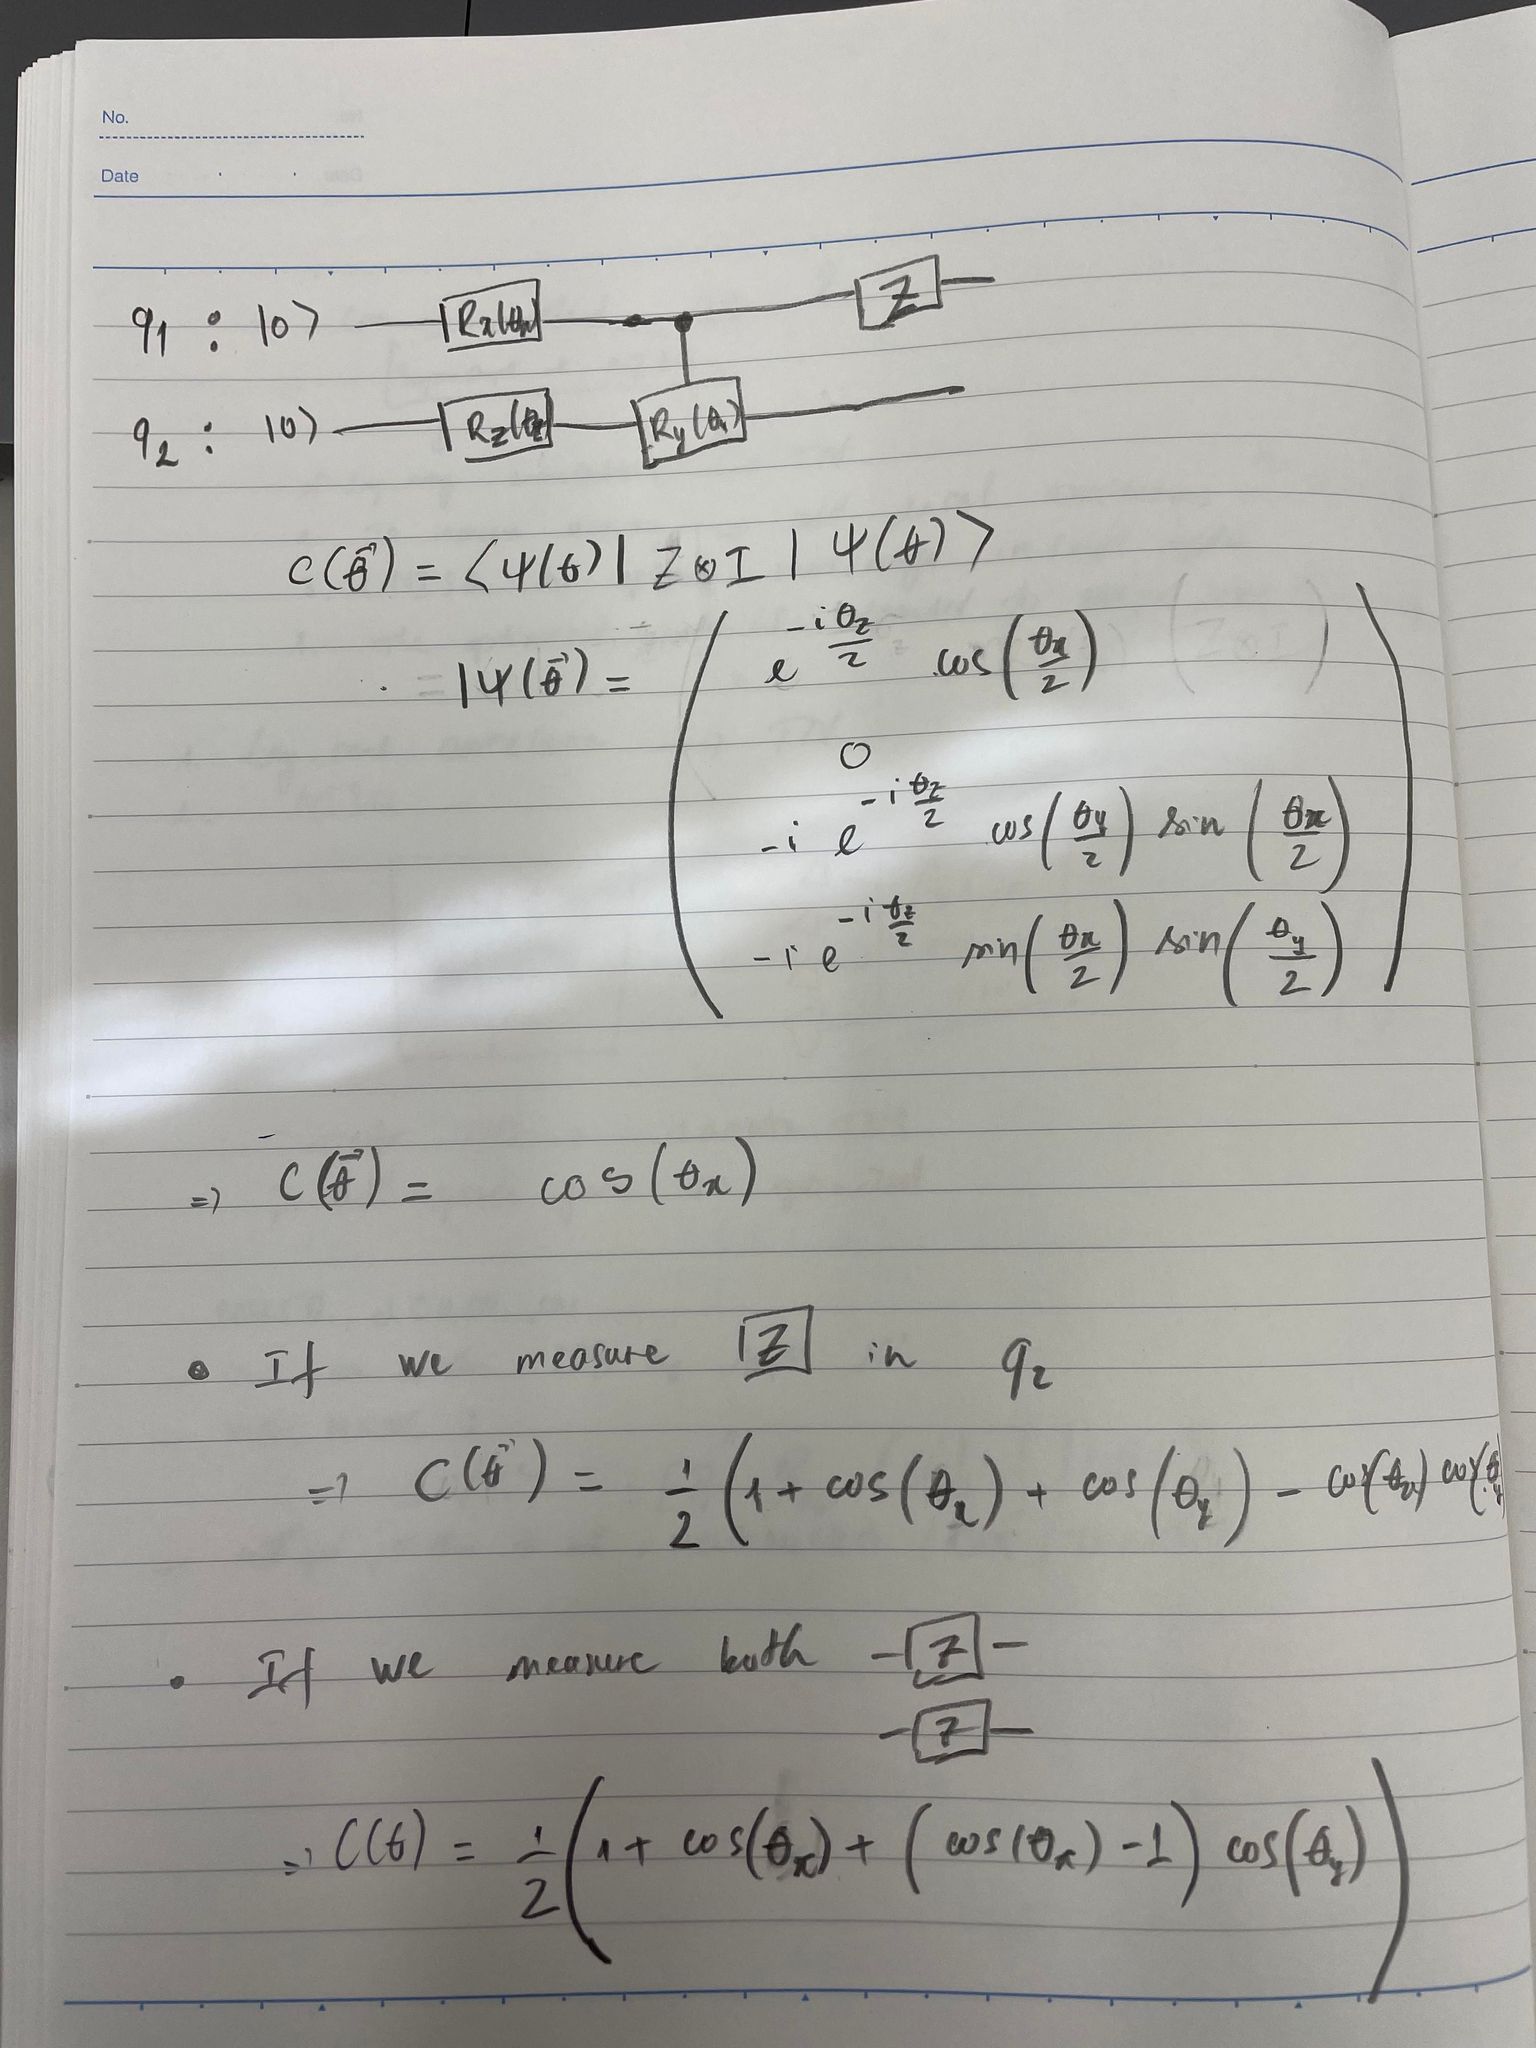 No.
Date
q₁ : |0⟩ Rx(θx) Z
q₂ : |0⟩ Rz(θz) Ry(θy)
C(θ⃗) = ⟨ψ(θ)| Z⊗I |ψ(θ)⟩
|ψ(θ⃗) = ( e^{-i θz/2} cos(θx/2)
0
-i e^{-i θz/2} cos(θy/2) sin(θx/2)
-i e^{-i θz/2} sin(θx/2) sin(θy/2) )
=> C(θ⃗) = cos(θx)
• If we measure Z in q₂
=> C(θ⃗) = 1/2 (1 + cos(θx) + cos(θy) - cos(θx) cos(θy)
• If we measure both Z
Z
=> C(θ) = 1/2 (1 + cos(θx) + (cos(θx) - 1) cos(θy))